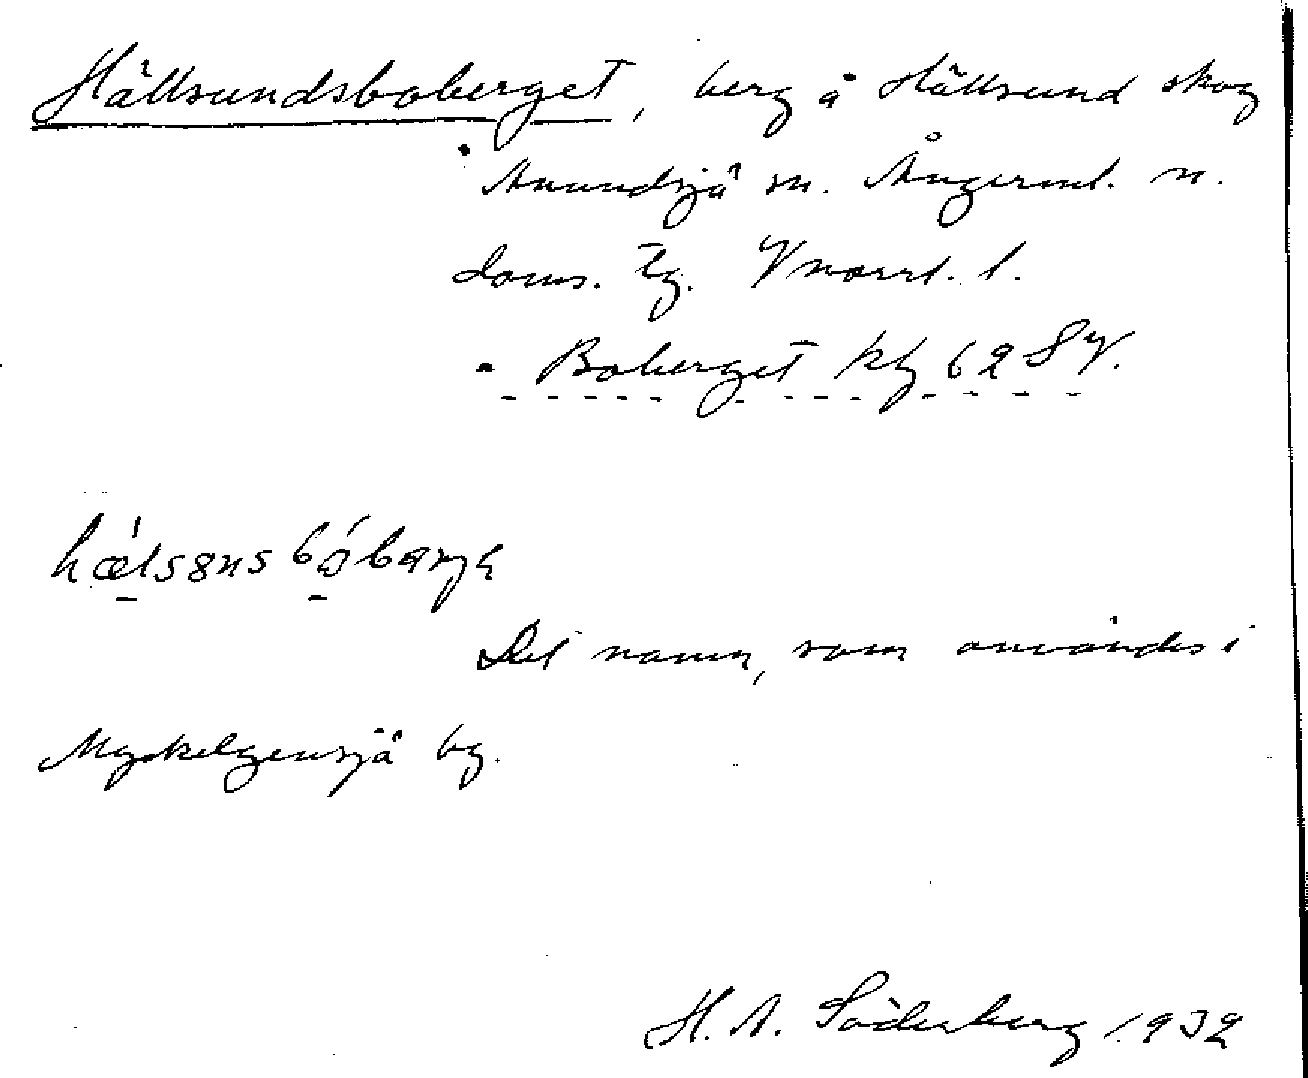 Hällsundsboberget, berg å Hällsund skog
Anundsjö sn. Ångerml. n.
doms. tg. Vnorrl. l.
Boberget kbl 62 SV.
Det namn, som användes i
Myckelgensjö by.
H. A. Söderberg 1932